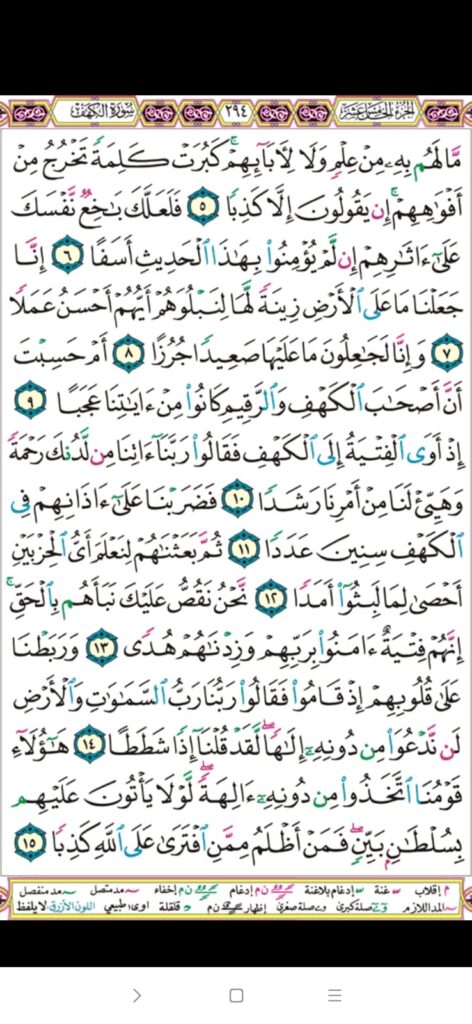 الجزء الخامس عشر ٢٩٤ سورة الكهف
مَّا لَهُم بِهِۦ مِنۡ عِلۡمٖ وَلَا لِأٓبَآئِهِمۡۚ كَبُرَتۡ كَلِمَةٗ تَخۡرُجُ مِنۡ
أَفۡوَٰهِهِمۡۚ إِن يَقُولُونَ إِلَّا كَذِبٗا ٥ فَلَعَلَّكَ بَٰخِعٞ نَّفۡسَكَ
عَلَىٰٓ ءَاثَٰرِهِمۡ إِن لَّمۡ يُؤۡمِنُواْ بِهَٰذَا ٱلۡحَدِيثِ أَسَفًا ٦ إِنَّا
جَعَلۡنَا مَا عَلَى ٱلۡأَرۡضِ زِينَةٗ لَّهَا لِنَبۡلُوَهُمۡ أَيُّهُمۡ أَحۡسَنُ عَمَلٗا
٧ وَإِنَّا لَجَٰعِلُونَ مَا عَلَيۡهَا صَعِيدٗا جُرُزًا ٨ أَمۡ حَسِبۡتَ
أَنَّ أَصۡحَٰبَ ٱلۡكَهۡفِ وَٱلرَّقِيمِ كَانُواْ مِنۡ ءَايَٰتِنَا عَجَبًا ٩
إِذۡ أَوَى ٱلۡفِتۡيَةُ إِلَى ٱلۡكَهۡفِ فَقَالُواْ رَبَّنَآ ءَاتِنَا مِن لَّدُنكَ رَحۡمَةٗ
وَهَيِّئۡ لَنَا مِنۡ أَمۡرِنَا رَشَدٗا ١٠ فَضَرَبۡنَا عَلَىٰٓ ءَاذَانِهِمۡ فِي
ٱلۡكَهۡفِ سِنِينَ عَدَدٗا ١١ ثُمَّ بَعَثۡنَٰهُمۡ لِنَعۡلَمَ أَيُّ ٱلۡحِزۡبَيۡنِ
أَحۡصَىٰ لِمَا لَبِثُوٓاْ أَمَدٗا ١٢ نَّحۡنُ نَقُصُّ عَلَيۡكَ نَبَأَهُم بِٱلۡحَقِّۚ
إِنَّهُمۡ فِتۡيَةٌ ءَامَنُواْ بِرَبِّهِمۡ وَزِدۡنَٰهُمۡ هُدٗى ١٣ وَرَبَطۡنَا
عَلَىٰ قُلُوبِهِمۡ إِذۡ قَامُواْ فَقَالُواْ رَبُّنَا رَبُّ ٱلسَّمَٰوَٰتِ وَٱلۡأَرۡضِ
لَن نَّدۡعُوَاْ مِن دُونِهِۦٓ إِلَٰهٗاۖ لَّقَدۡ قُلۡنَآ إِذٗا شَطَطًا ١٤ هَٰٓؤُلَآءِ
قَوۡمُنَا ٱتَّخَذُواْ مِن دُونِهِۦٓ ءَالِهَةٗۖ لَّوۡلَا يَأۡتُونَ عَلَيۡهِم
بِسُلۡطَٰنِۭ بَيِّنٖۖ فَمَنۡ أَظۡلَمُ مِمَّنِ ٱفۡتَرَىٰ عَلَى ٱللَّهِ كَذِبٗا ١٥
م إقلاب غنة إدغام بلاغنة ن م إدغام ن م إخفاء مد متصل مد منفصل
المد اللازم صلة كبرى صلة صغرى إظهار ن م قلقلة اوى: طبيعي اللون الأزرق: لا يلفظ